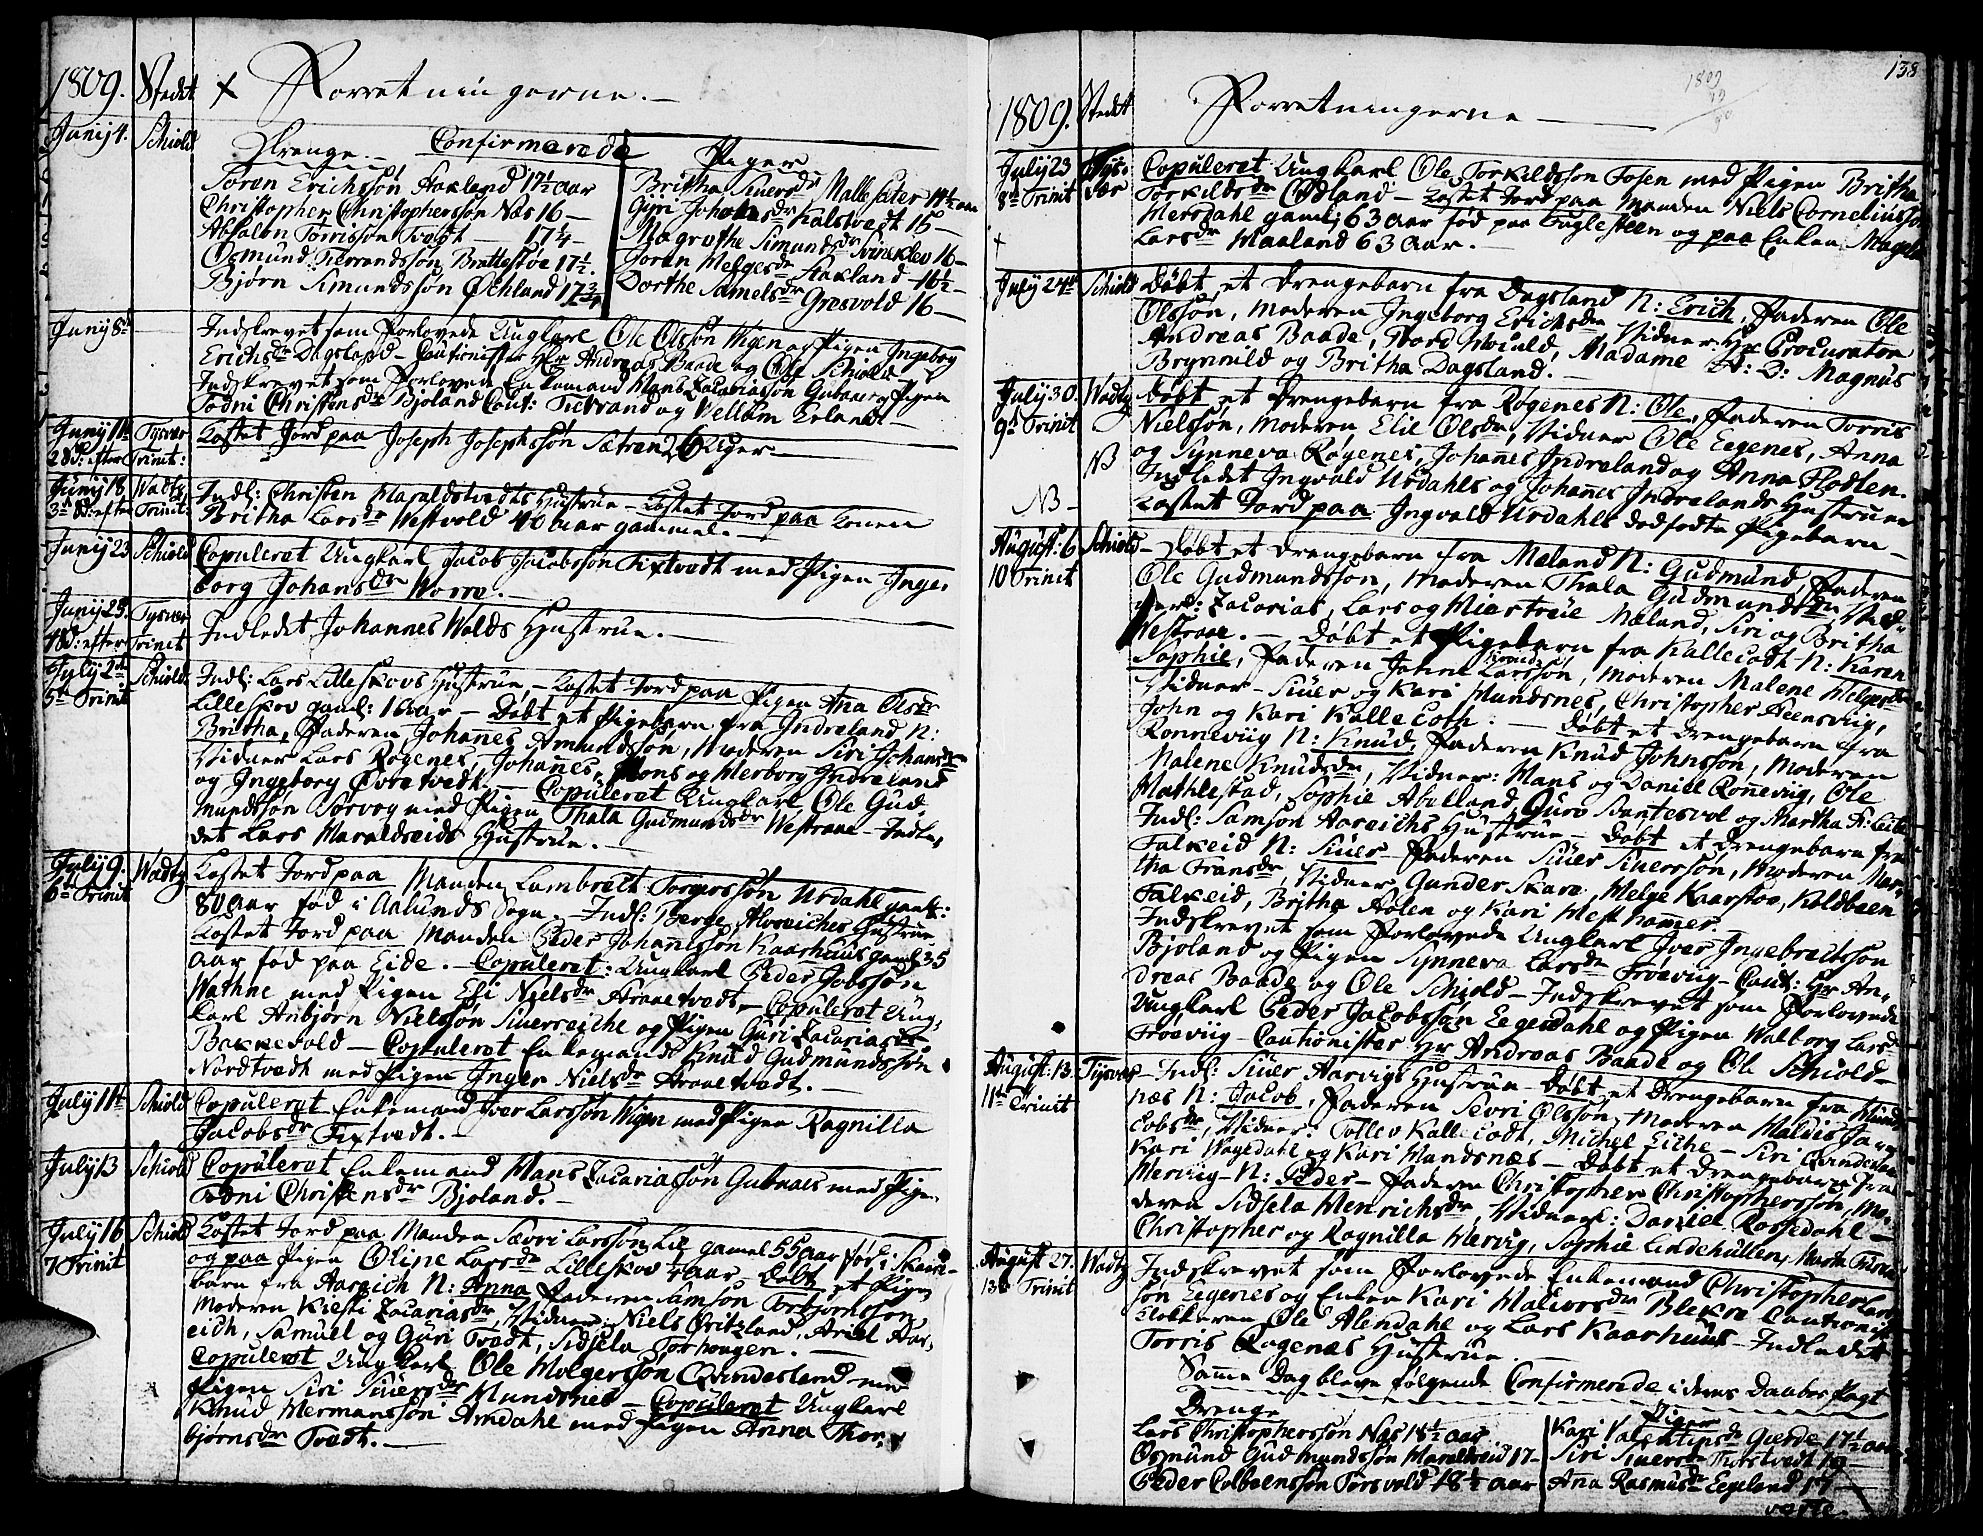 1809. Stedet + Forretningerne.
Junij 4. Schiold
Drenge Confirmerede Piger
Søren Erichssøn Aakland 17½ aar
Christopher Christophersøn Næs 16 —
Absalon Torrissøn Tvedt — 17¼ —
Osmund Tierrandssøn Brattestøe 17½.
Bjørn Simundssøn Øchland 17¾
Britha Siuersdr Mallesæter 17½ aar
Guri Johansdr Kalstvedt 15 —
Magrethe Simundsdr Svinklev 16 —
Joren Helgesdr Aakland 16½ —
Dorthe Samelsdr Gresvold 16 —
Junij 8de — Indskrevet som Forlovede Ungkarl Ole Olssøn Wigen og Pigen Ingeborg
Erichsdr Dagsland — Cautionister Hr Andreas Baade og Ole Schiold
Indskrevet som Forlovede Enkemand Hans Zacariassøn Gubnaes og Pigen
Todni Christensdr Bjoland Caut: Tierrand og Vellom Erland —
Junij 11te Tysvær Kastet Jord paa Joseph Josephssøn Sætren 26 Uger. —
2 Sd: efter Trinit:
Junij 18 Wadtz Indl: Christen Haraldstvedts Hustrue — Kastet Jord paa Konen
3de Sd: efter Trinit: Britha Larsdr Westvold 40 aar gammel. —
Junij 23 Schiold Copuleret Ungkarl Jacob Jacobssøn Tixtvedt med Pigen Inge-
borg Johansdr Norre. —
Junij 25. Tysvær
4 Sd: efter Trinit Indledet Johannes Walds Hustrue. —
July 2den Schiold. Indl: Lars Lilleskovs Hustrue, — Kastet Jord paa Pigen Ana Olsdr
5te Trinit Lilleskov gaml: 16 aar — Døbt et Pigebarn fra Indreland N:
Britha, Faderen Johanes Amundssøn, Moderen Siri Johansdr
Vidner Lars Røgenes, Johannes, Mons og Herborg Indreland
og Ingeborg Øvretvedt. — Copuleret Ungkarl Ole Gud-
mundssøn Sørvog med Pigen Thala Gudmundsdr Westraae — Indle-
det Lars Haraldseids Hustrue. —
July 9. Wadtz Kastet Jord paa Manden Lambrect Torgerssøn Urdahl gaml:
6te Trinit 80 aar fød i Aalunds Sogn. — Indl: Berge Alvseiches Hustrue.
Kastet Jord paa Manden Peder Johanssøn Kaarhuus gaml: 35
aar fød paa Eide. — Copuleret: Ungkarl Peder Jobssøn
Wathne med Pigen Eli Nielsdr Araaetvedt, — Copuleret Ung-
karl Anbjørn Nielssøn Siuerseiche og Pigen Guri Zacariasdr
Bakkefold — Copuleret Enkemand Knud Gudmundssøn
Nordtvedt med Pigen Inger Nielsdr Araaetvedt. —
July 11te Schiold Copuleret Enkemand Iver Larssøn Wigen med Pigen Ragnilla
Jacobsdr Tixtvedt. —
July 13 Schiold Copuleret Enkemand Hans Zacariassøn Gubnaes med Pigen
Todni Christensdr Bjoland. —
July 16 Schiold Kastet Jord paa Manden Sævri Larssøn Lie gamel 55 aar fød i
7 Trinit og paa Pigen Oline Larsdr Lilleskov 4 aar — Døbt et Pige-
barn fra Aareich N: Anna Faderen Samson Torbjørnssøn
Moderen Kiesti Zacariasdr, Vidner: Niels Øritzland, Ariel Aar-
eich, Samuel og Guri Tvedt, Sidsela Torhougen. —
Copuleret Ungkarl Ole Holgerssøn Qvindesland med
Pigen Siri Siuersdr Mundsnes — Copuleret Ungkarl
Knud Hermanssøn Amdahl med Pigen Anna Thor-
bjørnsdr Tvedt. —
138
1809
1809. Stedet Forretningerne —
July 23 Tys- Copuleret Ungkarl Ole Torkildssøn Fosen med Pigen Britha
8de Trinit vær Torkildsdr Ødland — Kastet Jord paa Manden Niels Corneliussøn
Hersdahl gaml: 63 aar fød paa Fuglesteen og paa Enken Magela
+ Larsdr Haaland 63 aar. —
July 24de Schiold Døbt et Drengebarn fra Dagsland N: Erich, Faderen Ole
Olssøn, Moderen Ingeborg Erichsdr Vidner Hr Procurator
Andreas Baade, Tord Hviuld, Madame A: D: Magnus
Brynnild og Britha Dagsland. —
July 30. Wadtz Døbt et Drengebarn fra Røgenes N: Ole, Faderen Torris
9de Trinit Nielssøn, Moderen Elie Olsdr, Vidner Ole Eegenes, Anna
NB og Synneva Røgenes, Johannes Indreland og Anna Flodten.
Indledet Ingvald Urdahls og Johannes Indrelands Hustruer
NB — Kastet Jord paa Ingvald Urdahls dødfødte Pigebarn —
August: 6 Schiold — Døbt et Drengebarn fra Mæland N: Gudmund, Faderen
10 Trinit Ole Gudmundssøn, Moderen Thala Gudmundsdr, Vid-
nere: Zacarias, Lars og Mæland, Siri og Britha
Westraae. — Døbt et Pigebarn fra Kallecodt N: Karen
Sophie, Faderen Johne Larssøn, Moderen Malene Helgesdr
Vidner — Siuer og Kari Mundsnes, Christopher Steensviig,
John og Kari Kallecoth. — Døbt et Drengebarn fra
Ronneviig N: Knud Faderen Knud Johnssøn, Moderen
Malene Knudsdr, Vidner: Hans og Daniel Roneviig, Ole
Mathlestad, Sophie Abelland, Guro Svantesvol og Martha
Indl: Samson Aareichs Hustrue — Døbt et Drengebarn fra
Falkeid N: Siuer Faderen Siuer Siuerssøn, Moderen Mar-
tha Transdr, Vidner Gunder Skare, Helge Kaarstøe, Koldbeen
Falkeid, Britha Aølen og Kari Westhamer.
Indskrevet som Forlovede Ungkarl Iver Ingebrectssøn
Bjoland og Pigen Synneva Larsdr Froeviig — Caut: Hr An-
dreas Baade og Ole Schiold — Indskrevet som Forlovede
Ungkarl Peder Jacobssøn Eegesdahl og Pigen Walborg Larsdr
Froeviig — Cautionister Hr Andreas Baade og Ole Schiold —
August: 13. Tysvær — Indl: Siuer Aarvigs Hustrue — Døbt et Drengebarn fra Munds-
11te Trinit næs N: Jacob, Faderen Sevri Olssøn, Moderen Maldis Ja-
cobsdr, Vidner: Tollev Kallecodt, Michel Eiche — Siri Qvindesland
Kari Wagedahl og Kari Mandsnæs — Døbt et Drengebarn fra
Herviig — N: Peder — Faderen Christopher Christopherssøn, Mo-
deren Sidsela Henrichsdr, Vidner: Daniel Rossedahl —
Christopher og Ragnilla Hervig, Sophie Lindehullen, Marta
August 27. Wadtz Indskrevet som Forlovede Enkemand Christopher Lars-
13de Trinit søn Eegenes og Enken Kari Haliversdr Blekra Cautionist
Klokkeren Ole Alendahl og Lars Kaarhuus — Indledet
Torris Røgenes Hustrue —
Samme Dag bleve følgende Confirmerede i deres Daabes Pagt
Drenge Piger
Lars Christopherssøn Næs 18½ aar
Osmund Gudmundssøn Haraldseid 17 —
Peder Colbeenssøn Førsvold 18½ aar
Kari Valentinsdr Gierde 17½ aar
Siri Siuersdr Tixtvedt 19 —
Ana Rasmusdr Eegeland 17 —
verte.